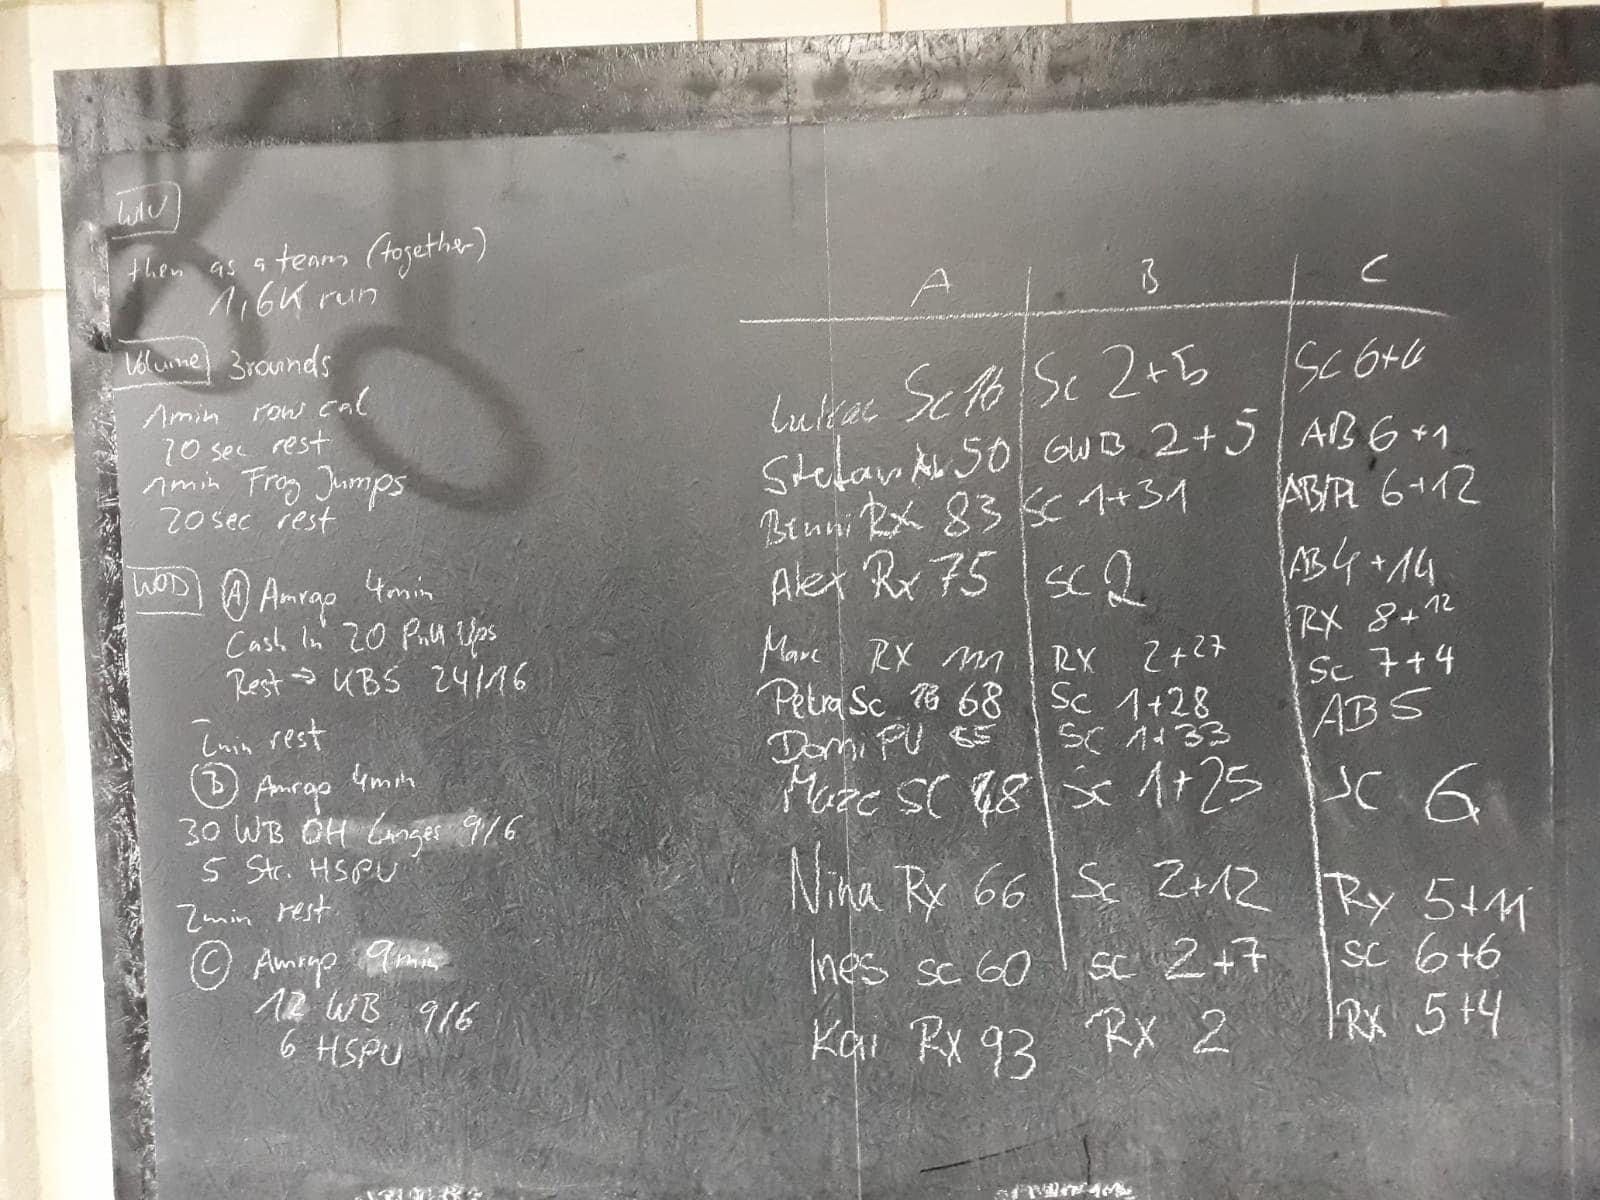 WU
then as a team (together)
1,6K run
Volume 3rounds
1min row cal
20 sec rest
1min Frog Jumps
20sec rest
WOD A Amrap 4min
Cash In 20 Pull Ups
Rest → KBS 24/16
2min rest
B Amrap 4min
30 WB OH Lunges 9/6
5 Str. HSPU
2min rest
C Amrap 9min
12 WB 9/6
6 HSPU
A B C
Lukas Sc 16 Sc 2+5 SC 6+6
Stefan 50 GWB 2+5 AB 6+1
Benni RX 83 SC 1+31 6+12
Alex Rx 75 SC 2 AB 4+14
Marc RX 111 RX 2+27 RX 8+12
Petra Sc 16 68 Sc 1+28 Sc 7+4
Domi PU SC 1+33 AB 5
Marc SC 48 SC 1+25 SC 6
Nina Rx 66 Sc 2+12 Rx 5+11
Ines SC 60 SC 2+7 SC 6+6
Kai RX 93 RX 2 RX 5+4